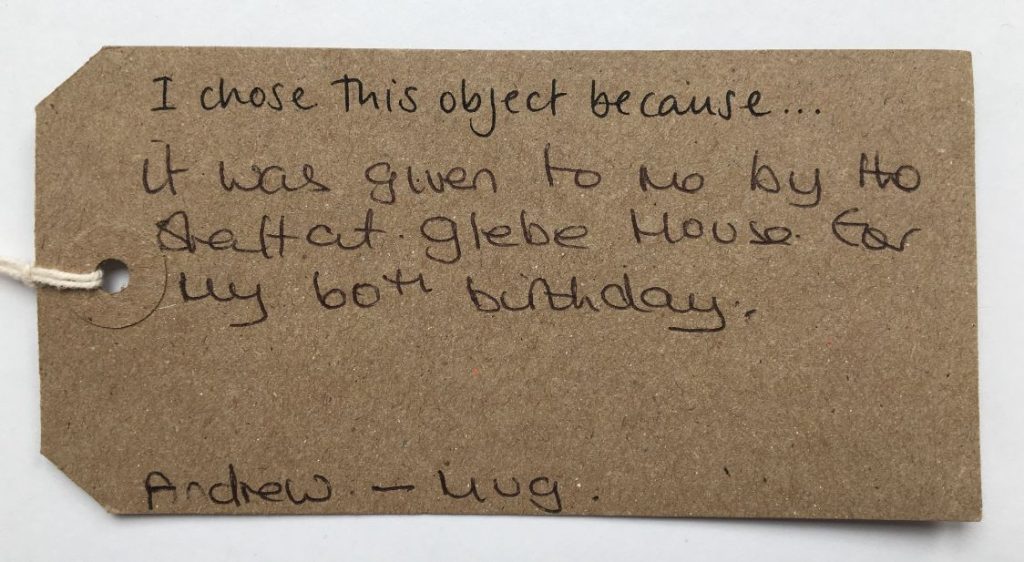 I chose this object because...
it was given to me by the
staff at glebe House for
My 60th birthday.
Andrew - Mug.